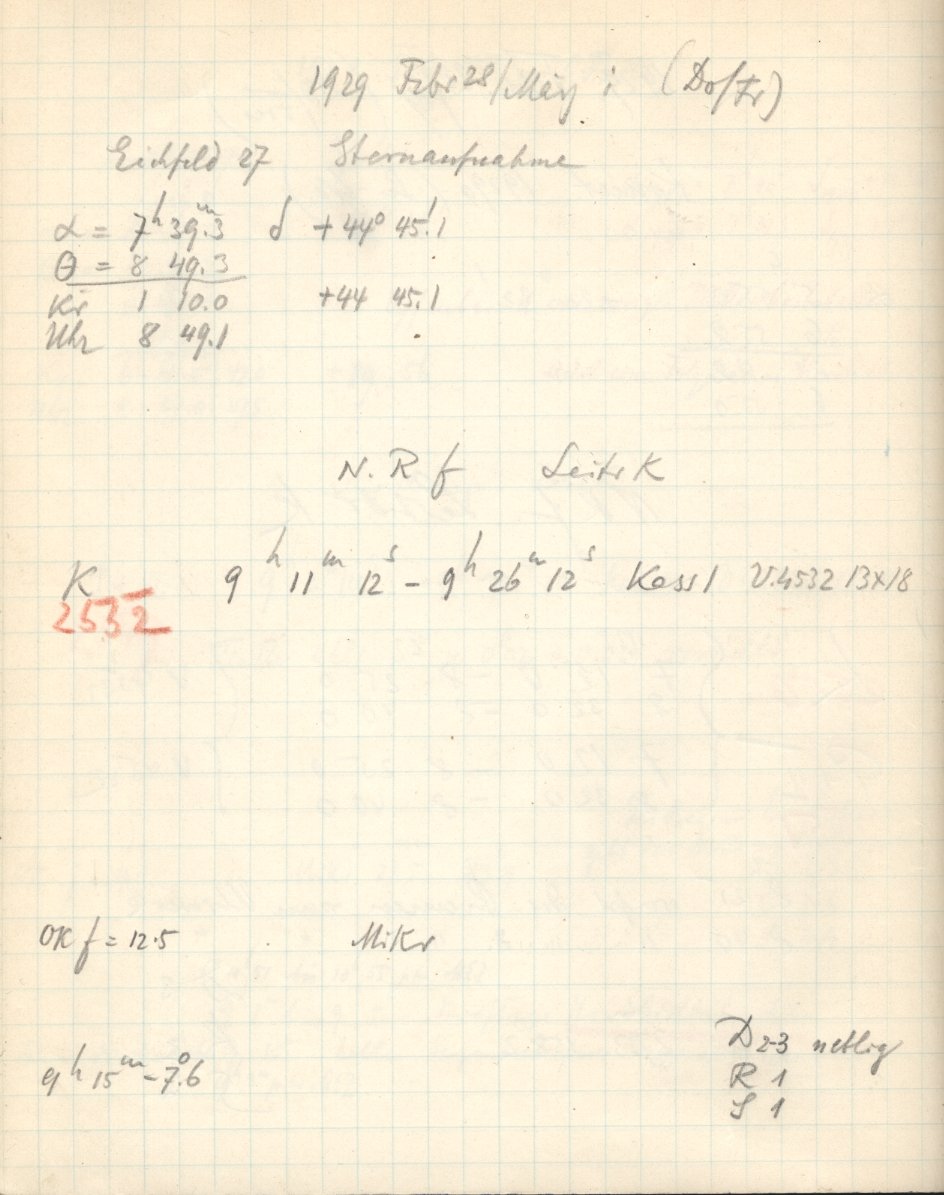 1929 Febr 28/März 1 (Do/Fr)
Eichfeld 27 Sternaufnahme
α = 7h 39m.3 δ +44° 45'.1
θ = 8 49.3
Kr 1 10.0 +44 45.1
Uhr 8 49.1
N.R f Leitr K
K 9h 11m 12s – 9h 26m 12s Kass 1 V.4532 13x18
2532
OK f = 12.5 Mikr
D 2-3 neblig
9h 15m –7°.6
R 1
S 1